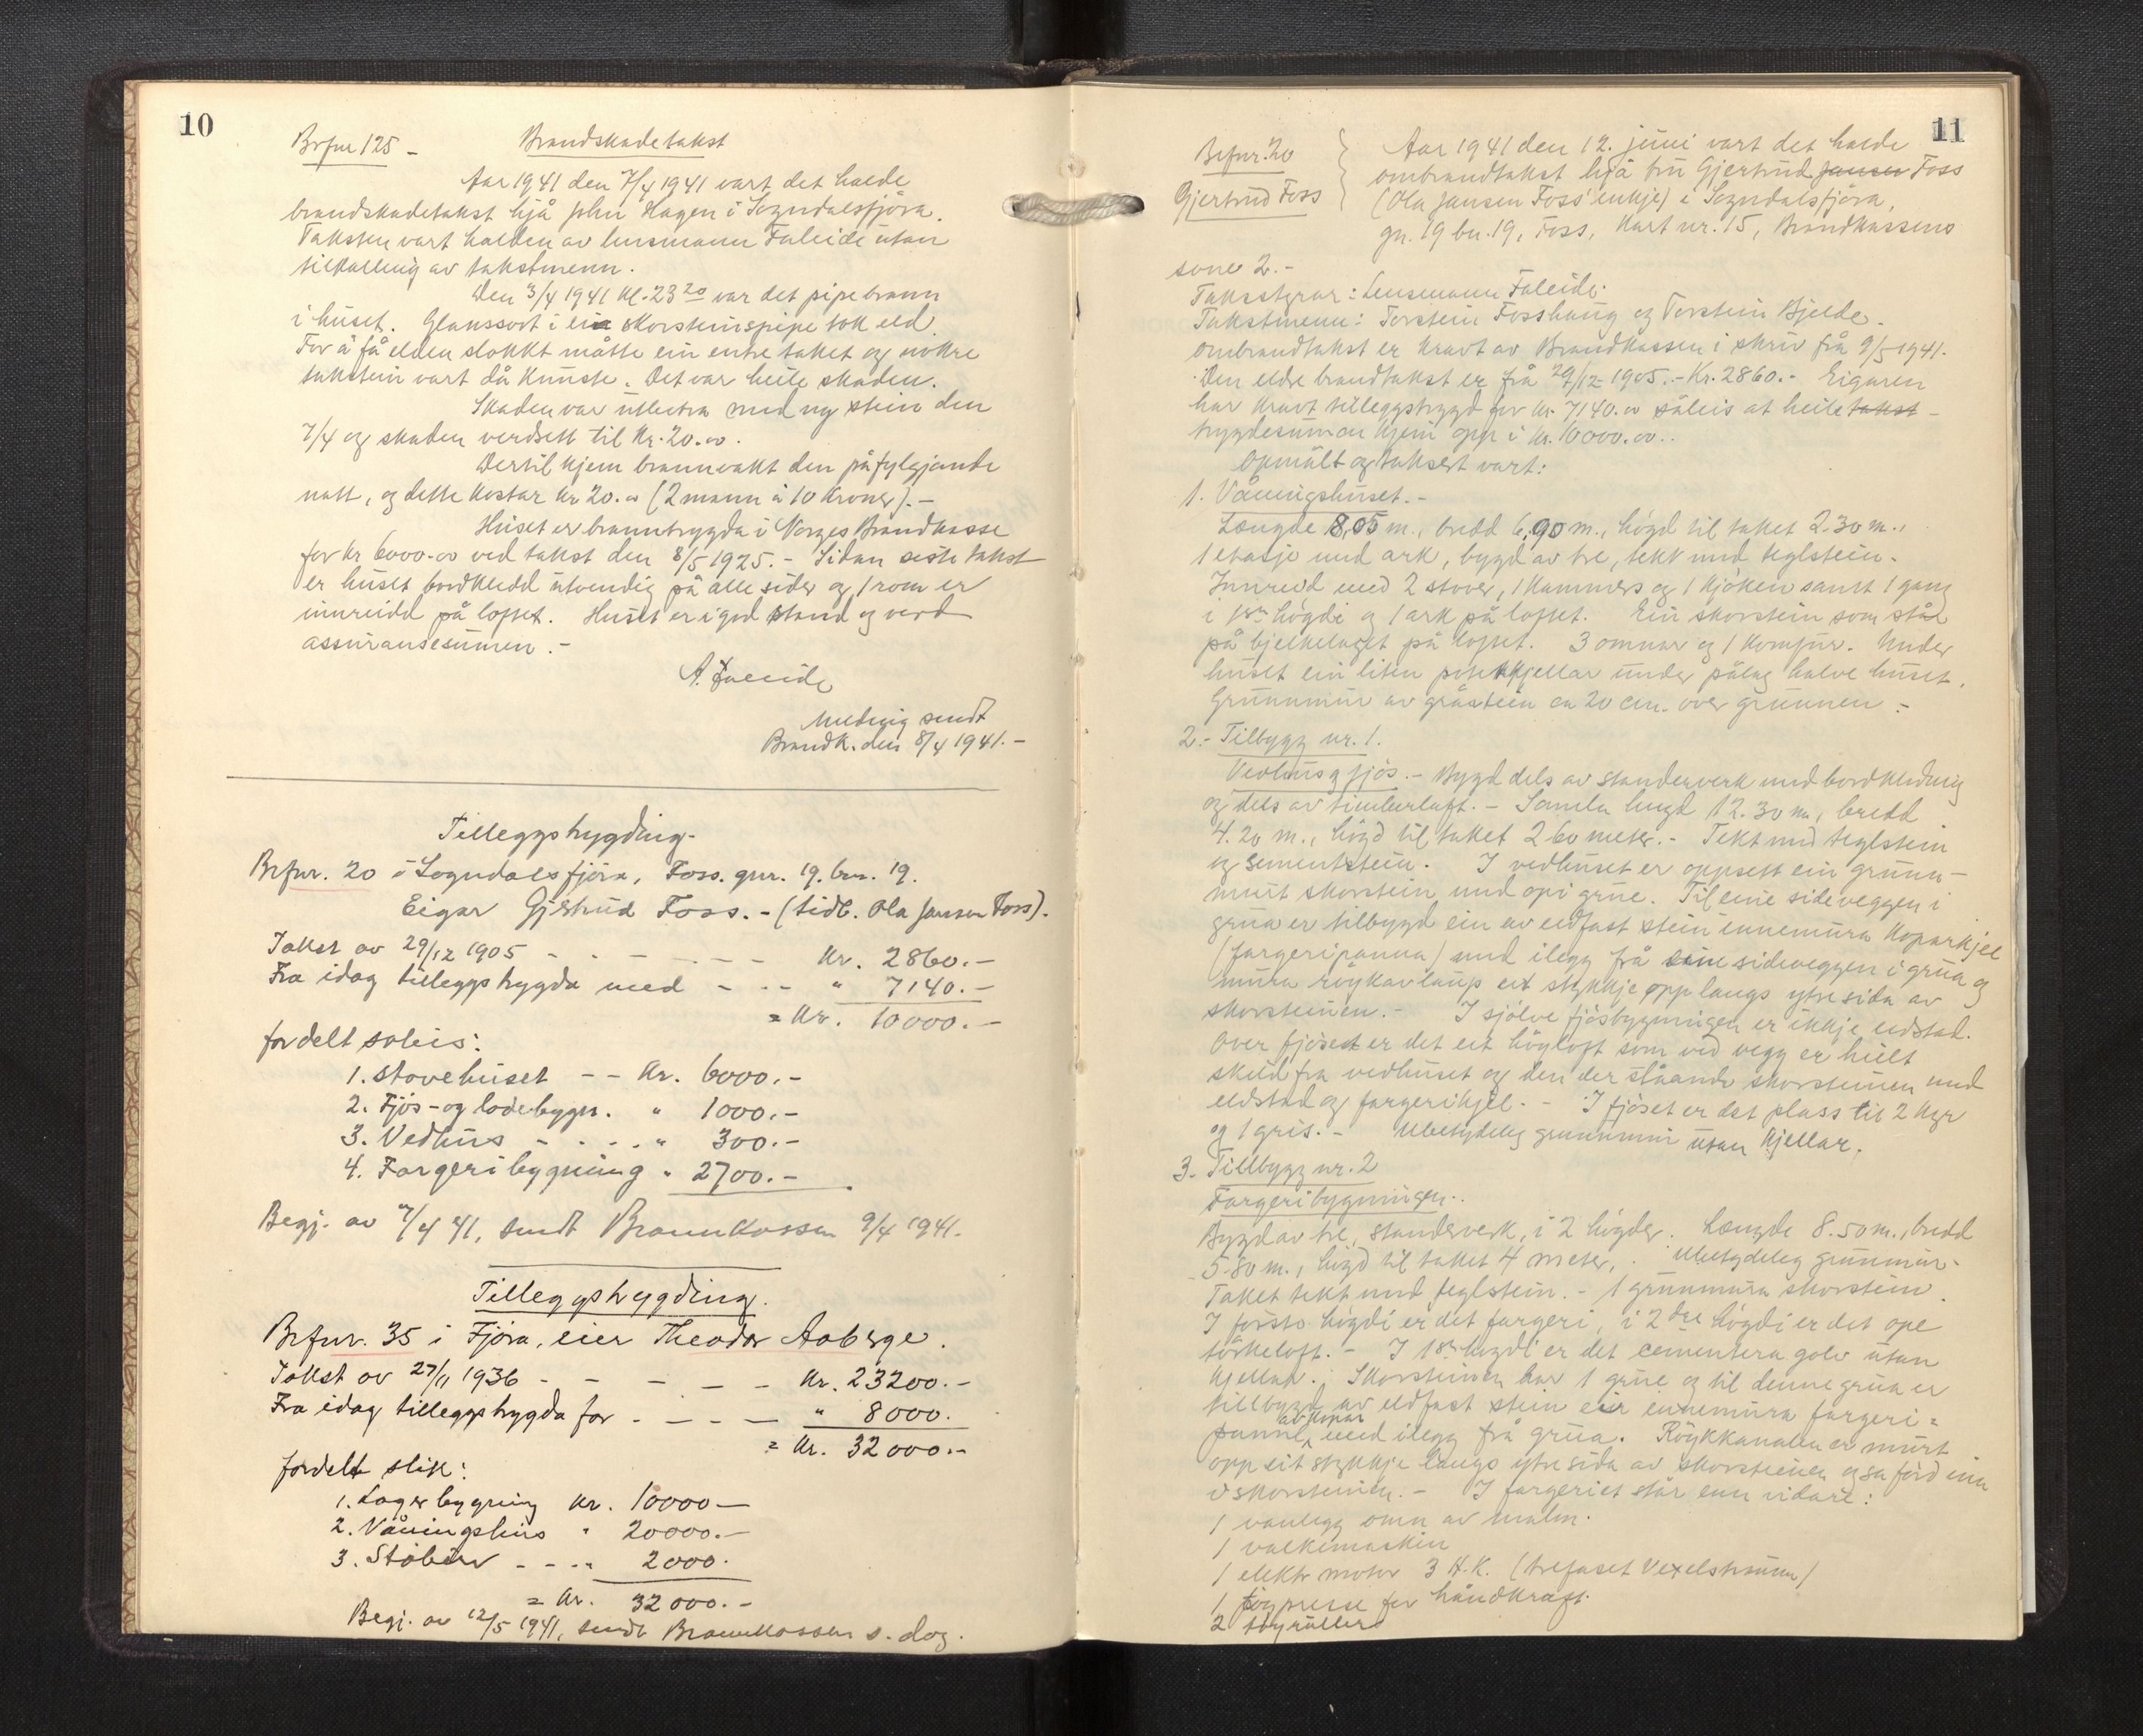 10
Brfnr 125 -
Brandskadetakst
Aar 1941 den 7/4 1941 vart det halde
brandskadetakst hjå John Hagen i Sogndalsfjöra.
Taksten vart halden av lensmann Faleide utan
tilkalling av takstmenn.
Den 3/4 1941 kl. 23 20 var det pipebrann
i huset. Glanssot i ein skorsteinspipe tok eld.
For å få elden slökkt måtte ein entre taket og nokre
takstein vart då knuste. Det var heile skaden.
Skaden var utbetra med ny stein den
7/4 og skaden verdsett til kr. 20.00.
Dertil kjem brannvakt den påfylgjande
natt, og dette kostar kr 20.00 (2 mann à 10 kroner).-
Huset er branntrygda i Norges Brandkasse
for kr 6000.00 ved takst den 8/5 1925.- Sidan siste takst
er huset bordkledd utvendig på alle sider og 1 rom er
innreidd på loftet. Huset er i god stand og verd
assuransesummen.-
A. Faleide
Melding sendt
Brandk. den 8/4 1941.-
Tilleggstrygding-
Brfnr. 20 i Sogndalsfjöra, Foss. gnr. 19. bnr. 19.
Eigar Gjertrud Foss.- (tidl. Ola Jansen Foss).
Takst av 29/12 1905 - - - - - - Kr. 2860.-
Fra idag tilleggstrygda med - - - " 7140.-
= Kr. 10000.-
fordelt soleis:
1. Stovehuset - - Kr. 6000.-
2. Fjös- og lödebygn. " 1000.-
3. Vedhus - - - - " 300.-
4. Fargeribygning " 2700.-
Begj. av 7/4 41, sendt Brannkassen 9/4 1941.
Tilleggstrygding.
Brfnr. 35 i Fjöra, eier Theodor Aaberge.
Takst av 27/11 1936 - - - - - Kr. 23200.-
Fra idag tilleggstrygda for - - - - " 8000.
= Kr. 32000.-
fordelt slik:
1. Lagerbygning kr. 10000-
2. Våningshus " 20000.-
3. Stabur - - - " 2000.
= Kr. 32000.-
Begj. av 12/5 1941, sendt Brannkassen s. dag.
11
Brfnr. 20
Gjertrud Foss
Aar 1941 den 12. juni vart det halde
ombrandtakst hjå fru Gjertrud Jansen Foss
(Ola Jansen Foss' enkje) i Sogndalsfjöra,
gn. 19 bn. 19, Foss, kart nr. 15, Brandkassens
sone 2.-
Takststyrar: Lensmann Faleide.
Takstmenn: Torstein Fosshaug og Torstein Bjelde.
Ombrandtakst er kravt av Brandkassen i skriv frå 9/5 1941.
Den eldre brandtakst er frå 29/12-1905.- Kr. 2860.- Eigaren
har kravt tilleggstrygd for kr. 7140.00 såleis at heile takst-
trygdesumman kjem opp i kr. 10000.00..
Opmålt og taksert vart:
1. Våningshuset.-
Længde 8,05 m., bredd 6,90 m., högd til taket 2.30 m.,
1 etasje med ark, bygd av tre, tekt med teglstein.
Innreid med 2 stover, 1 kammers og 1 kjöken samt 1 gang
i 1ste högdi og 1 ark på loftet. Ein skorstein som står
på bjelkelaget på loftet. 3 omnar og 1 komfur. Under
huset ein liten potetkjellar under pålag halve huset.
Grunnmur av gråstein ca 20 cm. over grunnen.-
2.- Tilbygg nr. 1.
Vedhus og fjös.- Bygd dels av standerverk med bordkledning
og dels av timberlaft.- Samla lengd 12.30 m, bredd
4.20 m., högd til taket 2 60 meter.- Tekt med teglstein
og sementstein. I vedhuset er oppsett ein grunn-
murt skorstein med opi grue. Til eine sideveggen i
grua er tilbygd ein av eldfast stein innemura koparkjel
(fargeripanna) med ilegg frå eine sideveggen i grua og
mura röykavlaup eit stykkje opp langs ytre sida av
skorsteinen.- I sjölve fjösbygningen er ikkje eldstad.
Over fjöset er det eit höyloft som ved vegg er heilt
skild fra vedhuset og den der ståande skorsteinen med
eldstad og fargerikjel.- I fjöset er det plass til 2 kyr
og 1 gris.- Ubetydeleg grunnmur utan kjellar.
3. Tillbygg nr. 2
Fargeribygningen..
Bygd av tre, standerverk, i 2 högder. Længde 8.50 m., bredd
5.80 m., högd til taket 4 meter. Ubetydeleg grunnmur.
Taket tekt med teglstein.- 1 grunnmura skorstein.
I fyrste högdi er det fargeri, i 2dre högdi er det ope
törkeloft.- I 1ste högdi er det cementera golv utan
kjellar. Skorsteinen har 1 grue og til denne grua er
tillbygd av eldfast stein ein innemura fargeri=
panne av kopar med ilegg frå grua. Röykkanalen er murt
opp eit stykkje langs ytre sida av skorsteinen og så förd inn
i skorsteinen.- I fargeriet står enn vidare:
1 vanlegg omn av malm.
1 valkemaskin
1 elektr motor 3 H.K. (trefaset Vexelstraum)
1 töypresse for håndkraft.
2 töyrullers